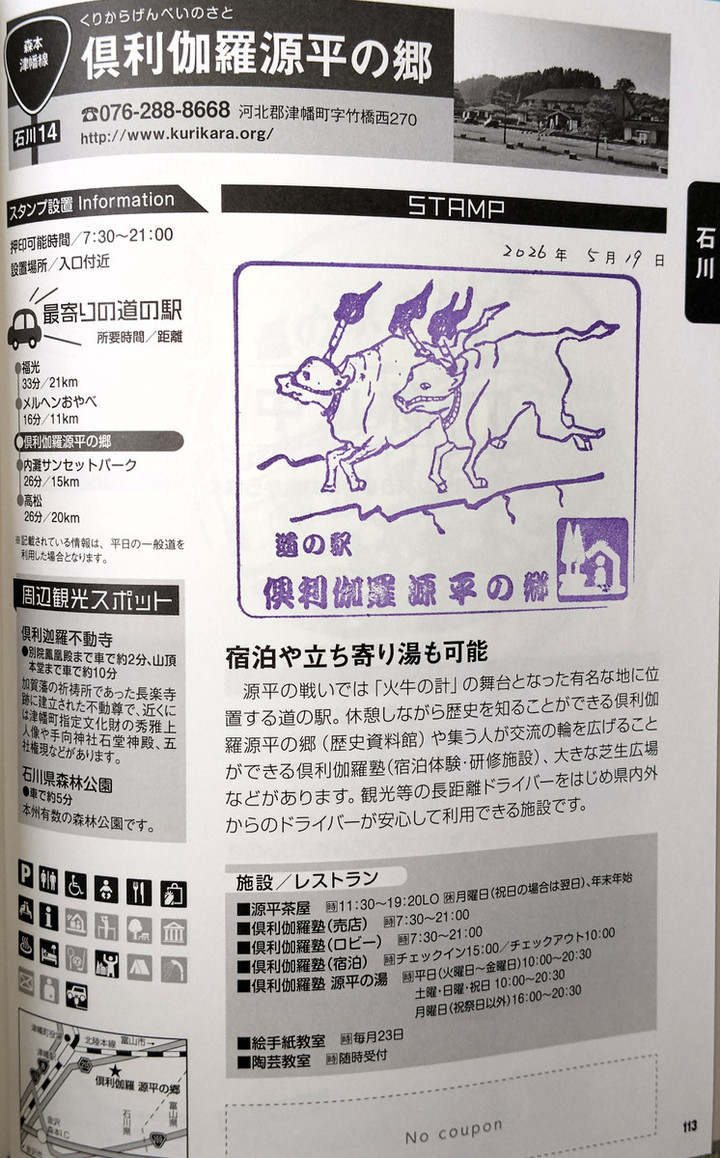 くりからげんぺいのさと
森本
津幡線
石川14
倶利伽羅源平の郷
☎076-288-8668 河北郡津幡町字竹橋西270
http://www.kurikara.org/
スタンプ設置 Information
押印可能時間／7:30〜21:00
設置場所／入口付近
最寄りの道の駅
所要時間／距離
福光
33分／21km
メルヘンおやべ
16分／11km
倶利伽羅源平の郷
内灘サンセットパーク
26分／15km
高松
26分／20km
※記載されている情報は、平日の一般道を
利用した場合となります。
周辺観光スポット
倶利迦羅不動寺
●別院鳳凰殿まで車で約2分、山頂
本堂まで車で約10分
加賀藩の祈祷所であった長楽寺
跡に建立された不動尊で、近くに
は津幡町指定文化財の秀雅上
人像や手向神社石堂神殿、五
社権現などがあります。
石川県森林公園
●車で約5分
本州有数の森林公園です。
P
i
津幡町役場
北陸本線
富山市→
津幡駅
倶利伽羅 源平の郷
石川県
富山県
金沢
森本I.C
金沢市
STAMP
2026年 5月19日
道の駅
倶利伽羅源平の郷
宿泊や立ち寄り湯も可能
源平の戦いでは「火牛の計」の舞台となった有名な地に位
置する道の駅。休憩しながら歴史を知ることができる倶利伽
羅源平の郷（歴史資料館）や集う人が交流の輪を広げること
ができる倶利伽羅塾（宿泊体験・研修施設）、大きな芝生広場
などがあります。観光等の長距離ドライバーをはじめ県内外
からのドライバーが安心して利用できる施設です。
施設／レストラン
■源平茶屋 時11:30〜19:20LO 休月曜日（祝日の場合は翌日）、年末年始
■倶利伽羅塾（売店） 時7:30〜21:00
■倶利伽羅塾（ロビー） 時7:30〜21:00
■倶利伽羅塾（宿泊） 時チェックイン15:00／チェックアウト10:00
■倶利伽羅塾 源平の湯 時平日（火曜日〜金曜日）10:00〜20:30
土曜・日曜・祝日 10:00〜20:30
月曜日（祝祭日以外）16:00〜20:30
■絵手紙教室 時毎月23日
■陶芸教室 時随時受付
No coupon
石川
113